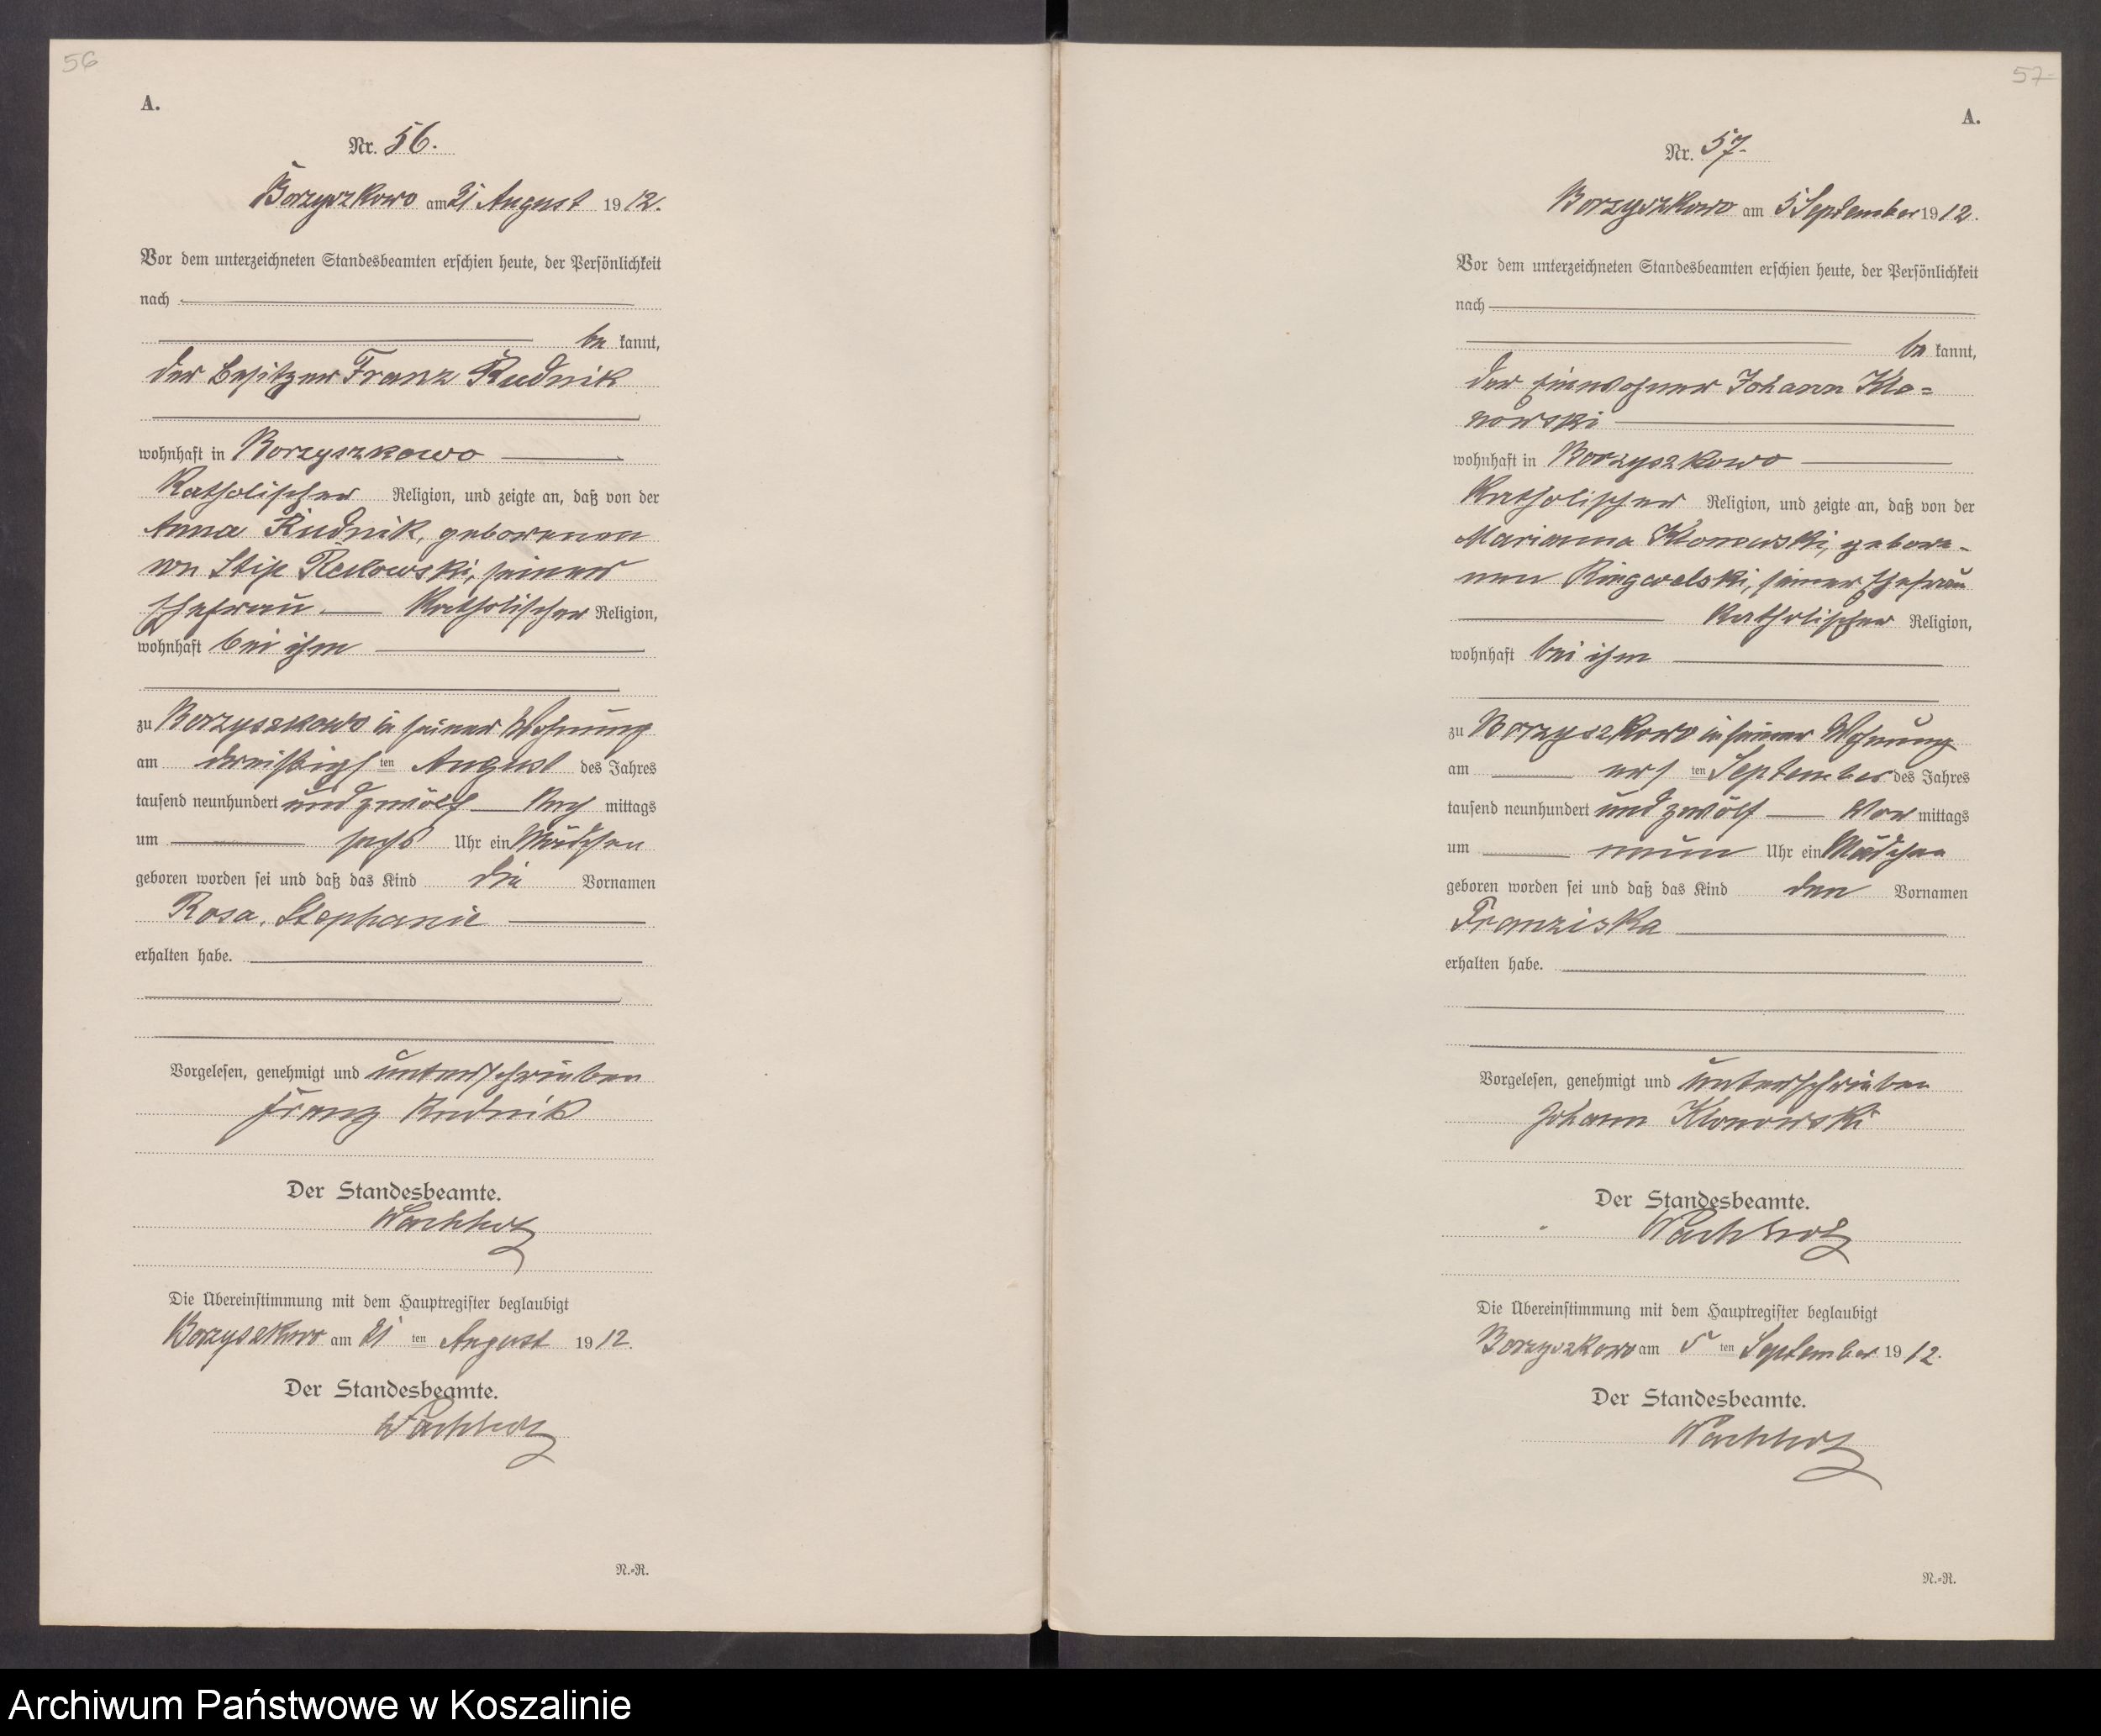 56
A.
Nr. 56.
Borzyszkowo am 31 August 1912.
Vor dem unterzeichneten Standesbeamten erschien heute, der Persönlichkeit
nach
be kannt,
der Besitzer Franz Rudnik
wohnhaft in Borzyszkowo
Katholischer Religion, und zeigte an, daß von der
Anna Rudnik, geborenen
von Stip Rekowski, seiner
Ehefrau Katholischer Religion,
wohnhaft bei ihm
zu Borzyszkowo in seiner Wohnung
am dreißigs ten August des Jahres
tausend neunhundert und zwölf Nach mittags
um sechs Uhr ein Mädchen
geboren worden sei und daß das Kind die Vornamen
Rosa, Stephanie
erhalten habe.
Vorgelesen, genehmigt und unterschrieben
Franz Rudnik
Der Standesbeamte.
Wachholz
Die Übereinstimmung mit dem Hauptregister beglaubigt
Borzyszkowo am 31 ten August 1912.
Der Standesbeamte.
Wachholz
N.=R.
57
A.
Nr. 57.
Borzyszkowo am 5 September 1912.
Vor dem unterzeichneten Standesbeamten erschien heute, der Persönlichkeit
nach
be kannt,
der Einwohner Johann Klo=
nowski
wohnhaft in Borzyszkowo
Katholischer Religion, und zeigte an, daß von der
Marianna Klonowski, gebore-
nen Ringwelski, seiner Ehefrau
Katholischer Religion,
wohnhaft bei ihm
zu Borzyszkowo in seiner Wohnung
am ers ten September des Jahres
tausend neunhundert und zwölf Vor mittags
um neun Uhr ein Mädchen
geboren worden sei und daß das Kind den Vornamen
Franziska
erhalten habe.
Vorgelesen, genehmigt und unterschrieben
Johann Klonowski
Der Standesbeamte.
Wachholz
Die Übereinstimmung mit dem Hauptregister beglaubigt
Borzyszkowo am 5 ten September 1912.
Der Standesbeamte.
Wachholz
N.=R.
Archiwum Państwowe w Koszalinie